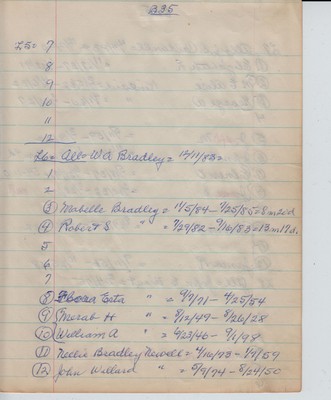 B35
L5= 7
8
9
10
11
12
L6= All= W.A Bradley = 12/11/83=
1
2
③ Mabelle Bradley = 11/5/84 – 7/25/85=8m20d.
④ Robert S. " = 7/29/82 – 9/16/83=13m17d.
5
6
7
⑧ Etta " = 9/7/71 – 4/25/54
⑨ Merab H " = 8/12/49 – 8/26/28
⑩ William A " = 6/23/46 – 9/1/98
⑪ Nellie Bradley Newell = 4/16/73 – 1/9/59
⑫ John Willard " = 5/9/74 – 5/24/50